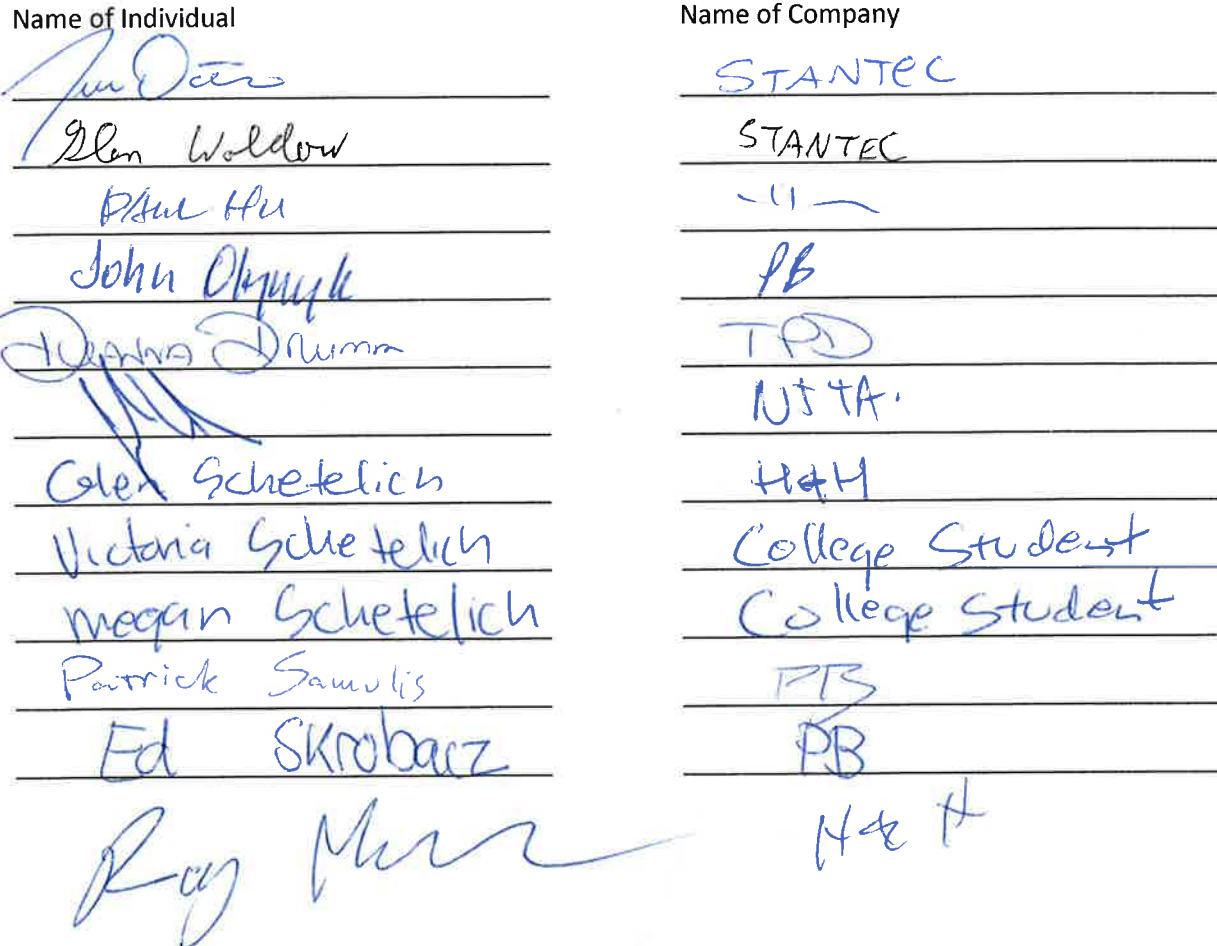 Name of Individual Name of Company
STANTEC
Glen Woldow STANTEC
PAUL HU -11-
John Olynyk PB
Deanna Drumm TPD
NJTA.
Glen Schetelich H&H
Victoria Schetelich College Student
Megan Schetelich College Student
Patrick Samulis PB
Ed SKrobacz PB
Ray H & H